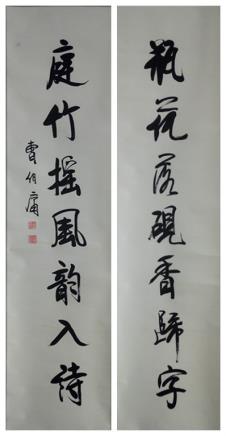 瓶花落硯香歸字
庭竹摇風韵入詩
曹伯庸